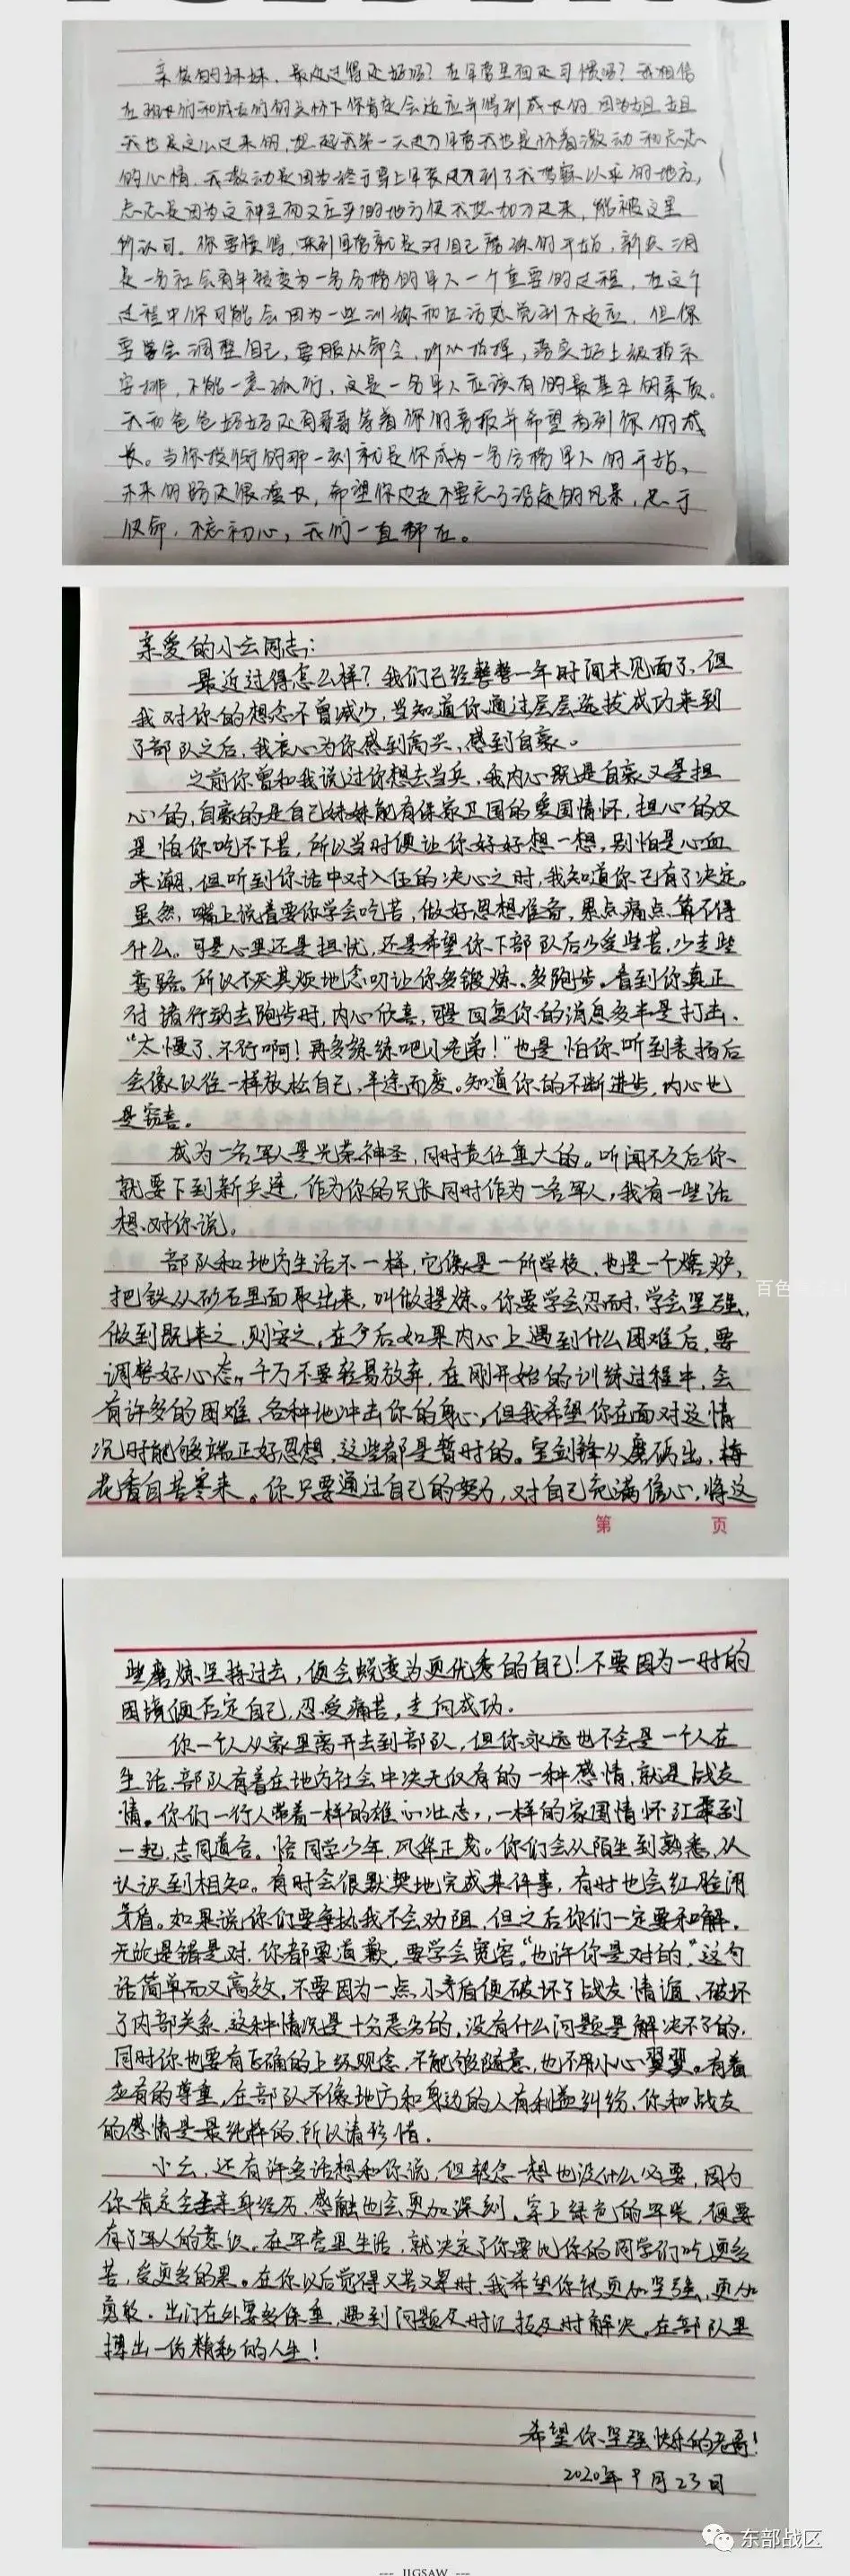 亲爱的妹妹，最近过得还好吗？在军营里面还习惯吗？我相信
在班长们和战友们的关怀下你肯定会适应并得到成长的，因为姐姐
我也是这么过来的，想起我第一天进入军营我也是怀着激动和忐忑
的心情，我激动是因为终于穿上军装及来到了我梦寐以求的地方，
忐忑是因为这神圣而又庄严的地方使我想加入进来，能被这里
所认可。你要懂得，来到军营就是对自己磨练的开始，新兵训
是一名社会青年转变为一名合格的军人一个重要的过程，在这个
过程中你可能会因为一些训练和生活感觉到不适应，但你
要学会调整自己，要服从命令，听从指挥，落实好上级指示
安排，不能一意孤行，这是一名军人应该有的最基本的素质。
我和爸爸妈妈还有哥哥等着你的喜报并希望看到你的成
长。当你授衔的那一刻就是你成为一名合格军人的开始，
未来的路还很漫长，希望你也走不要忘了沿途的风景，忠于
使命，不忘初心，我们一直都在。
亲爱的小云同志：
最近过得怎么样？我们已经整整一年时间未见面了，但
我对你的想念不曾减少，当知道你通过层层选拔成功来到
了部队之后，我衷心为你感到高兴，感到自豪。
之前你曾和我说过你想去当兵，我内心既是自豪又是担
心的，自豪的是自己妹妹能有保家卫国的爱国情怀，担心的又
是怕你吃不下苦，所以当时便让你好好想一想，别怕是心血
来潮，但听到你话中对入伍的决心之时，我知道你已有了决定。
虽然，嘴上说着要你学会吃苦，做好思想准备，累点痛点算不得
什么。可是心里还是担忧，还是希望你下部队后少受些苦，少走些
弯路。所以不厌其烦地念叨让你多锻炼、多跑步。看到你真正
付诸行动去跑步时，内心欣喜，可是回复你的消息多半是打击、
“太慢了，不行啊！再多练练吧小老弟！”也是怕你听到表扬后
会像以往一样放松自己，半途而废。知道你的不断进步，内心也
是窃喜。
成为一名军人是光荣神圣，同时责任重大的。听闻不久后你
就要下到新兵连，作为你的兄长同时作为一名军人，我有一些话
想对你说。
部队和地方生活不一样，它像是一所学校，也是一个熔炉，
把铁从砂石里面取出来，叫做提炼。你要学会忍耐，学会坚强，
做到既来之，则安之。在今后如果内心上遇到什么困难后，要
调整好心态，千万不要轻易放弃，在刚开始的训练过程中，会
有许多的困难，各种地冲击你的身心，但我希望你在面对这情
况时能够端正好思想，这些都是暂时的。宝剑锋从磨砺出，梅
花香自苦寒来。你只要通过自己的努力，对自己充满信心，将这
第 页
些磨炼坚持过去，便会蜕变为更优秀的自己！不要因为一时的
困境便否定自己，忍受痛苦，走向成功。
你一个人从家里离开去到部队，但你永远也不会是一个人在
生活，部队有着在地方社会中决无仅有的一种感情，就是战友
情。你们一行人带着一样的雄心壮志，一样的家国情怀汇聚到
一起，志同道合。恰同学少年，风华正茂。你们会从陌生到熟悉，从
认识到相知。有时会很默契地完成某件事，有时也会红脸闹
矛盾。如果说你们要争执我不会劝阻，但之后你们一定要和解，
无论是错是对，你都要道歉，要学会宽容，“也许你是对的”这句
话简单而又高效，不要因为一点小矛盾便破坏了战友情谊，破坏
了内部关系，这种情况是十分恶劣的，没有什么问题是解决不了的，
同时你也要有正确的上级观念，不能够随意，也不用小心翼翼。有着
应有的尊重，在部队不像地方和身边的人有利益纠纷，你和战友
的感情是最纯粹的，所以请珍惜。
小云，还有许多话想和你说，但转念一想也没什么必要，因为
你肯定会亲身经历，感触也会更加深刻。穿上绿色的军装，便要
有了军人的意识，在军营里生活，就决定了你要比你的同学们吃更多
苦，受更多的累。在你以后觉得又苦又累时，我希望你能更加坚强，更加
勇敢。出门在外要多保重，遇到问题及时汇报及时解决，在部队里
搏出一份精彩的人生！
希望你坚强快乐的老哥！
2020年9月23日
百色
东部战区
--- JIGSAW ---